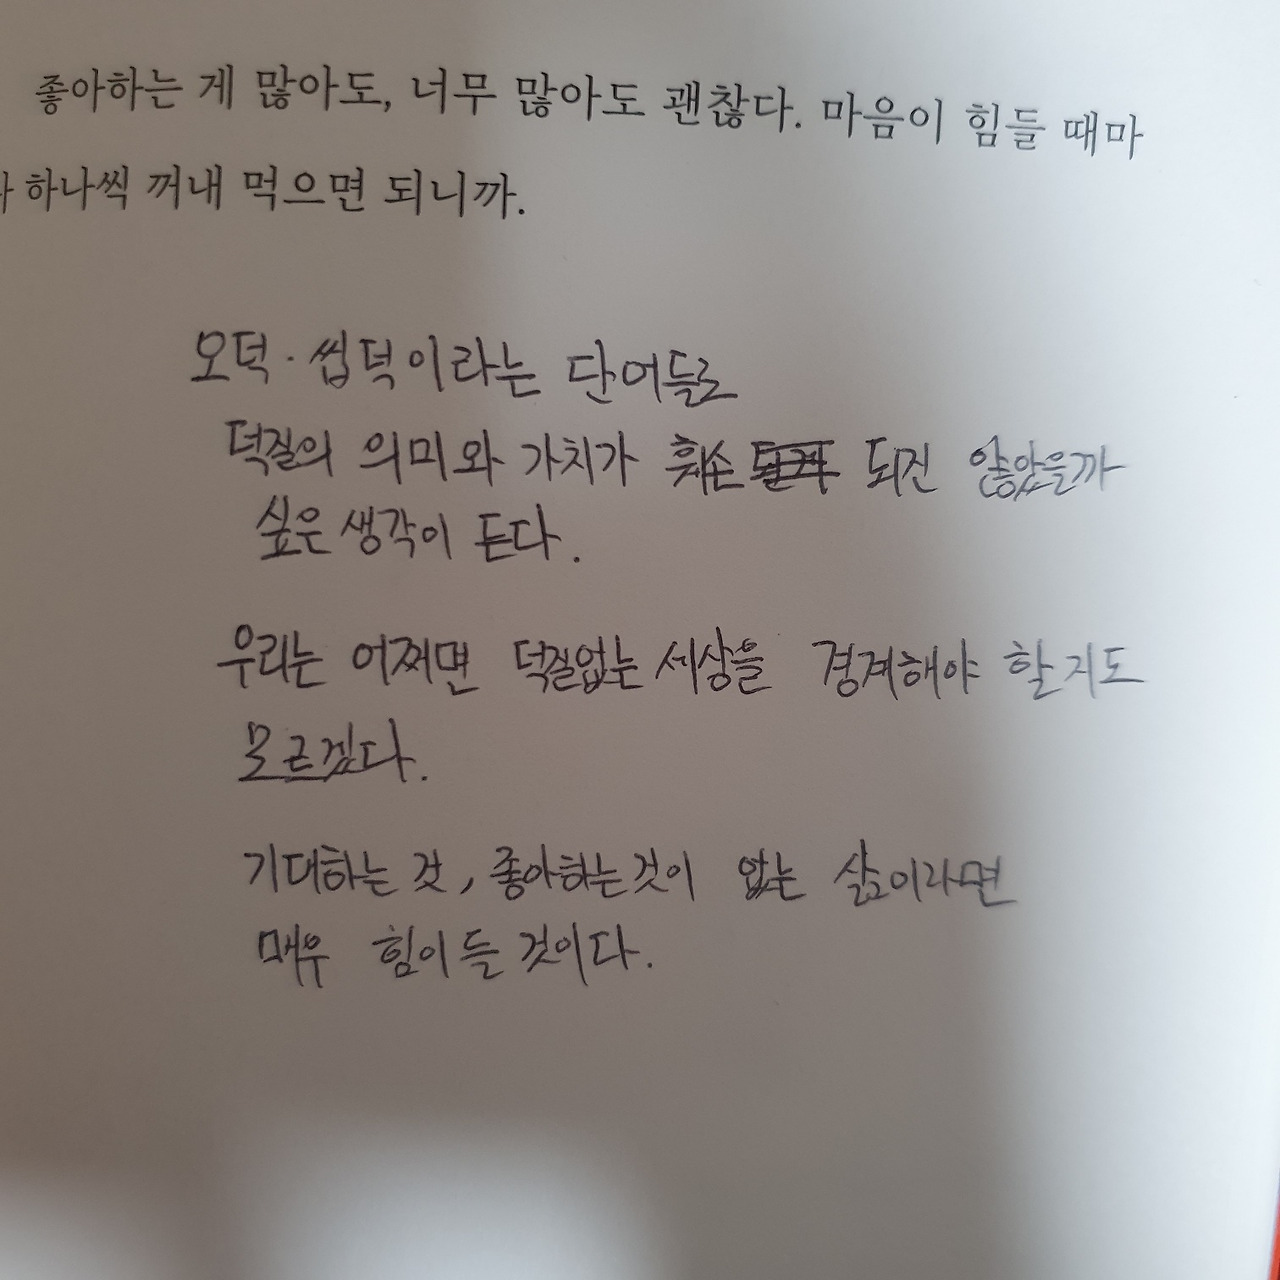 좋아하는 게 많아도, 너무 많아도 괜찮다. 마음이 힘들 때마
다 하나씩 꺼내 먹으면 되니까.
오덕·씹덕이라는 단어들로
덕질의 의미와 가치가 훼손 되진 않았을까
싶은 생각이 든다.
우리는 어쩌면 덕질없는 세상을 경계해야 할지도
모르겠다.
기대하는 것, 좋아하는 것이 없는 삶이라면
매우 힘이 들 것이다.